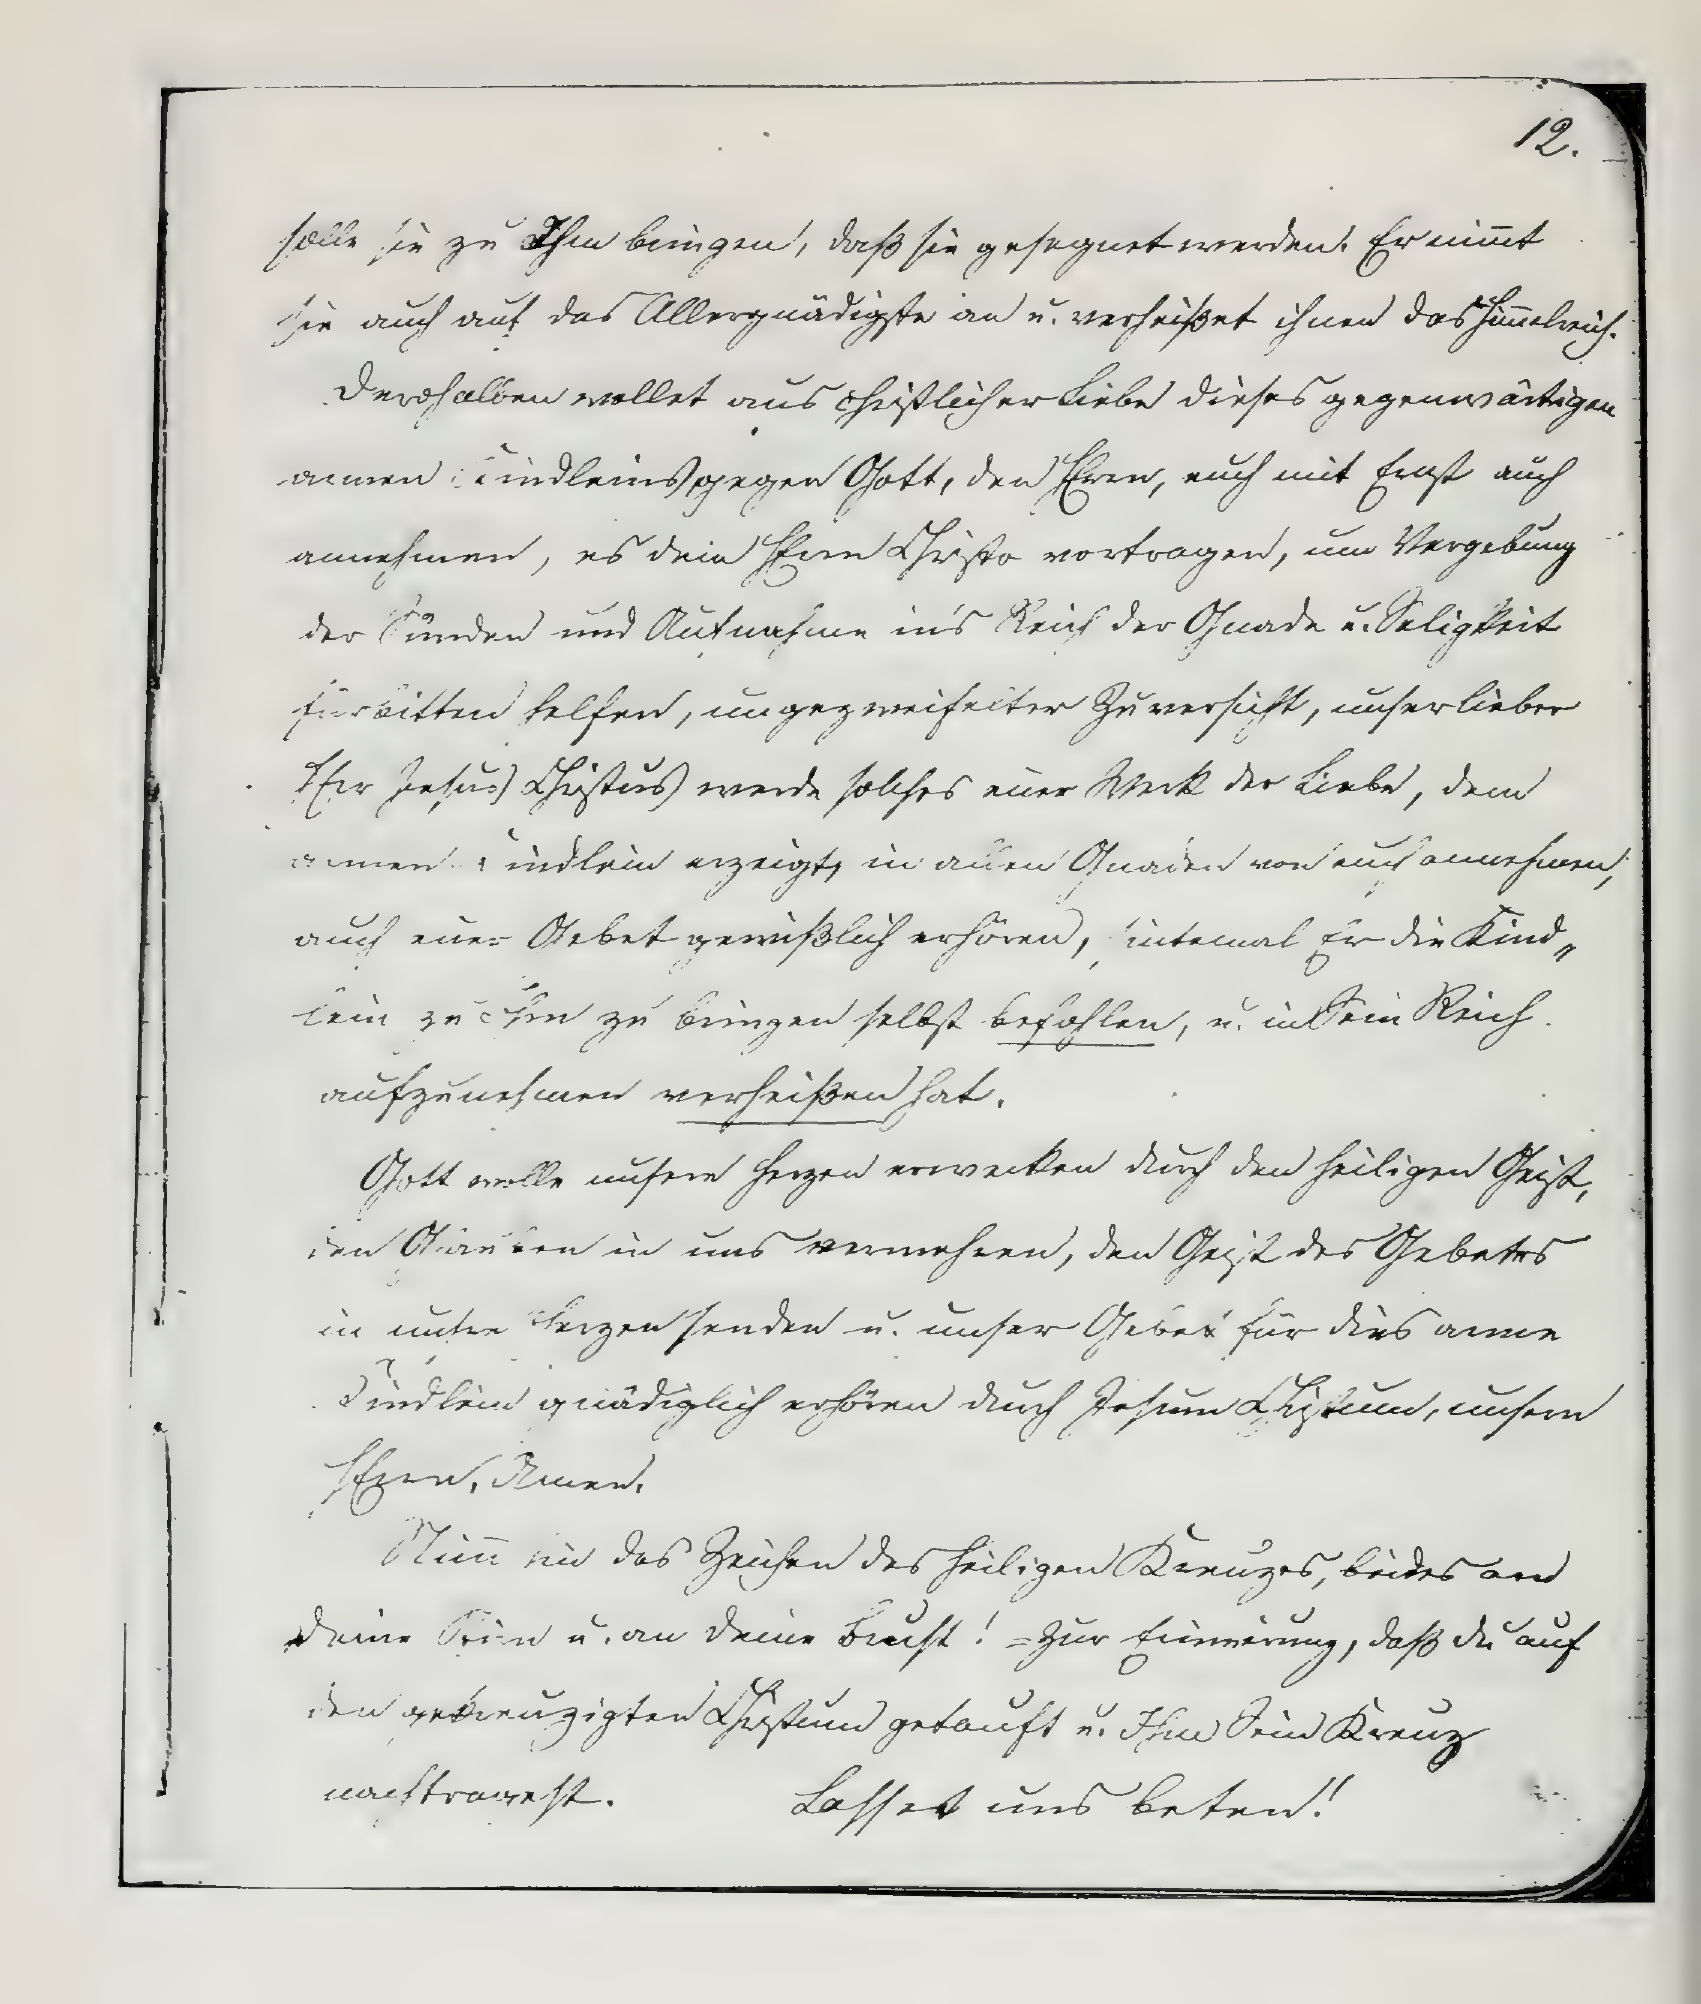 12.
solle sie zu Ihm bringen, daß sie gesegnet werden. Er nim̅t
sie auch auf das Allergnädigste an u. verheißet ihnen das Him̅elreich.
Derohalben wollet aus christlicher Liebe dieses gegenwärtigen
armen Kindleins gegen Gott, den HErrn, euch mit Ernst auch
annehmen, es dem HErrn Christo vortragen, um Vergebung
der Sünden und Aufnahme in's Reich der Gnade u. Seligkeit
fürbitten helfen, ungezweifelter Zuversicht, unser lieber
HErr Jesus Christus werde solches euer Werk der Liebe, dem
armen Kindlein erzeigt, in allen Gnaden von euch annehmen,
auch euer Gebet gewißlich erhören, sintemal Er die Kind„
lein zu Ihm zu bringen selbst befohlen, u. in Sein Reich
aufzunehmen verheißen hat.
Gott wolle unsere Herzen erwecken durch den heiligen Geist,
den Glauben in uns vermehren, den Geist des Gebetes
in unsre Herzen senden u. unser Gebet für dies arme
Kindlein gnädiglich erhören durch Jesum Christum, unsern
HErrn, Amen.
Nim̅ hin das Zeichen des heiligen Kreuzes, beides an
deine Stirn u. an deine Brust! = zur Erinnerung, daß du auf
den gekreuzigten Christum getauft u. Ihm Sein Kreuz
nachtragest. Lasset uns beten!